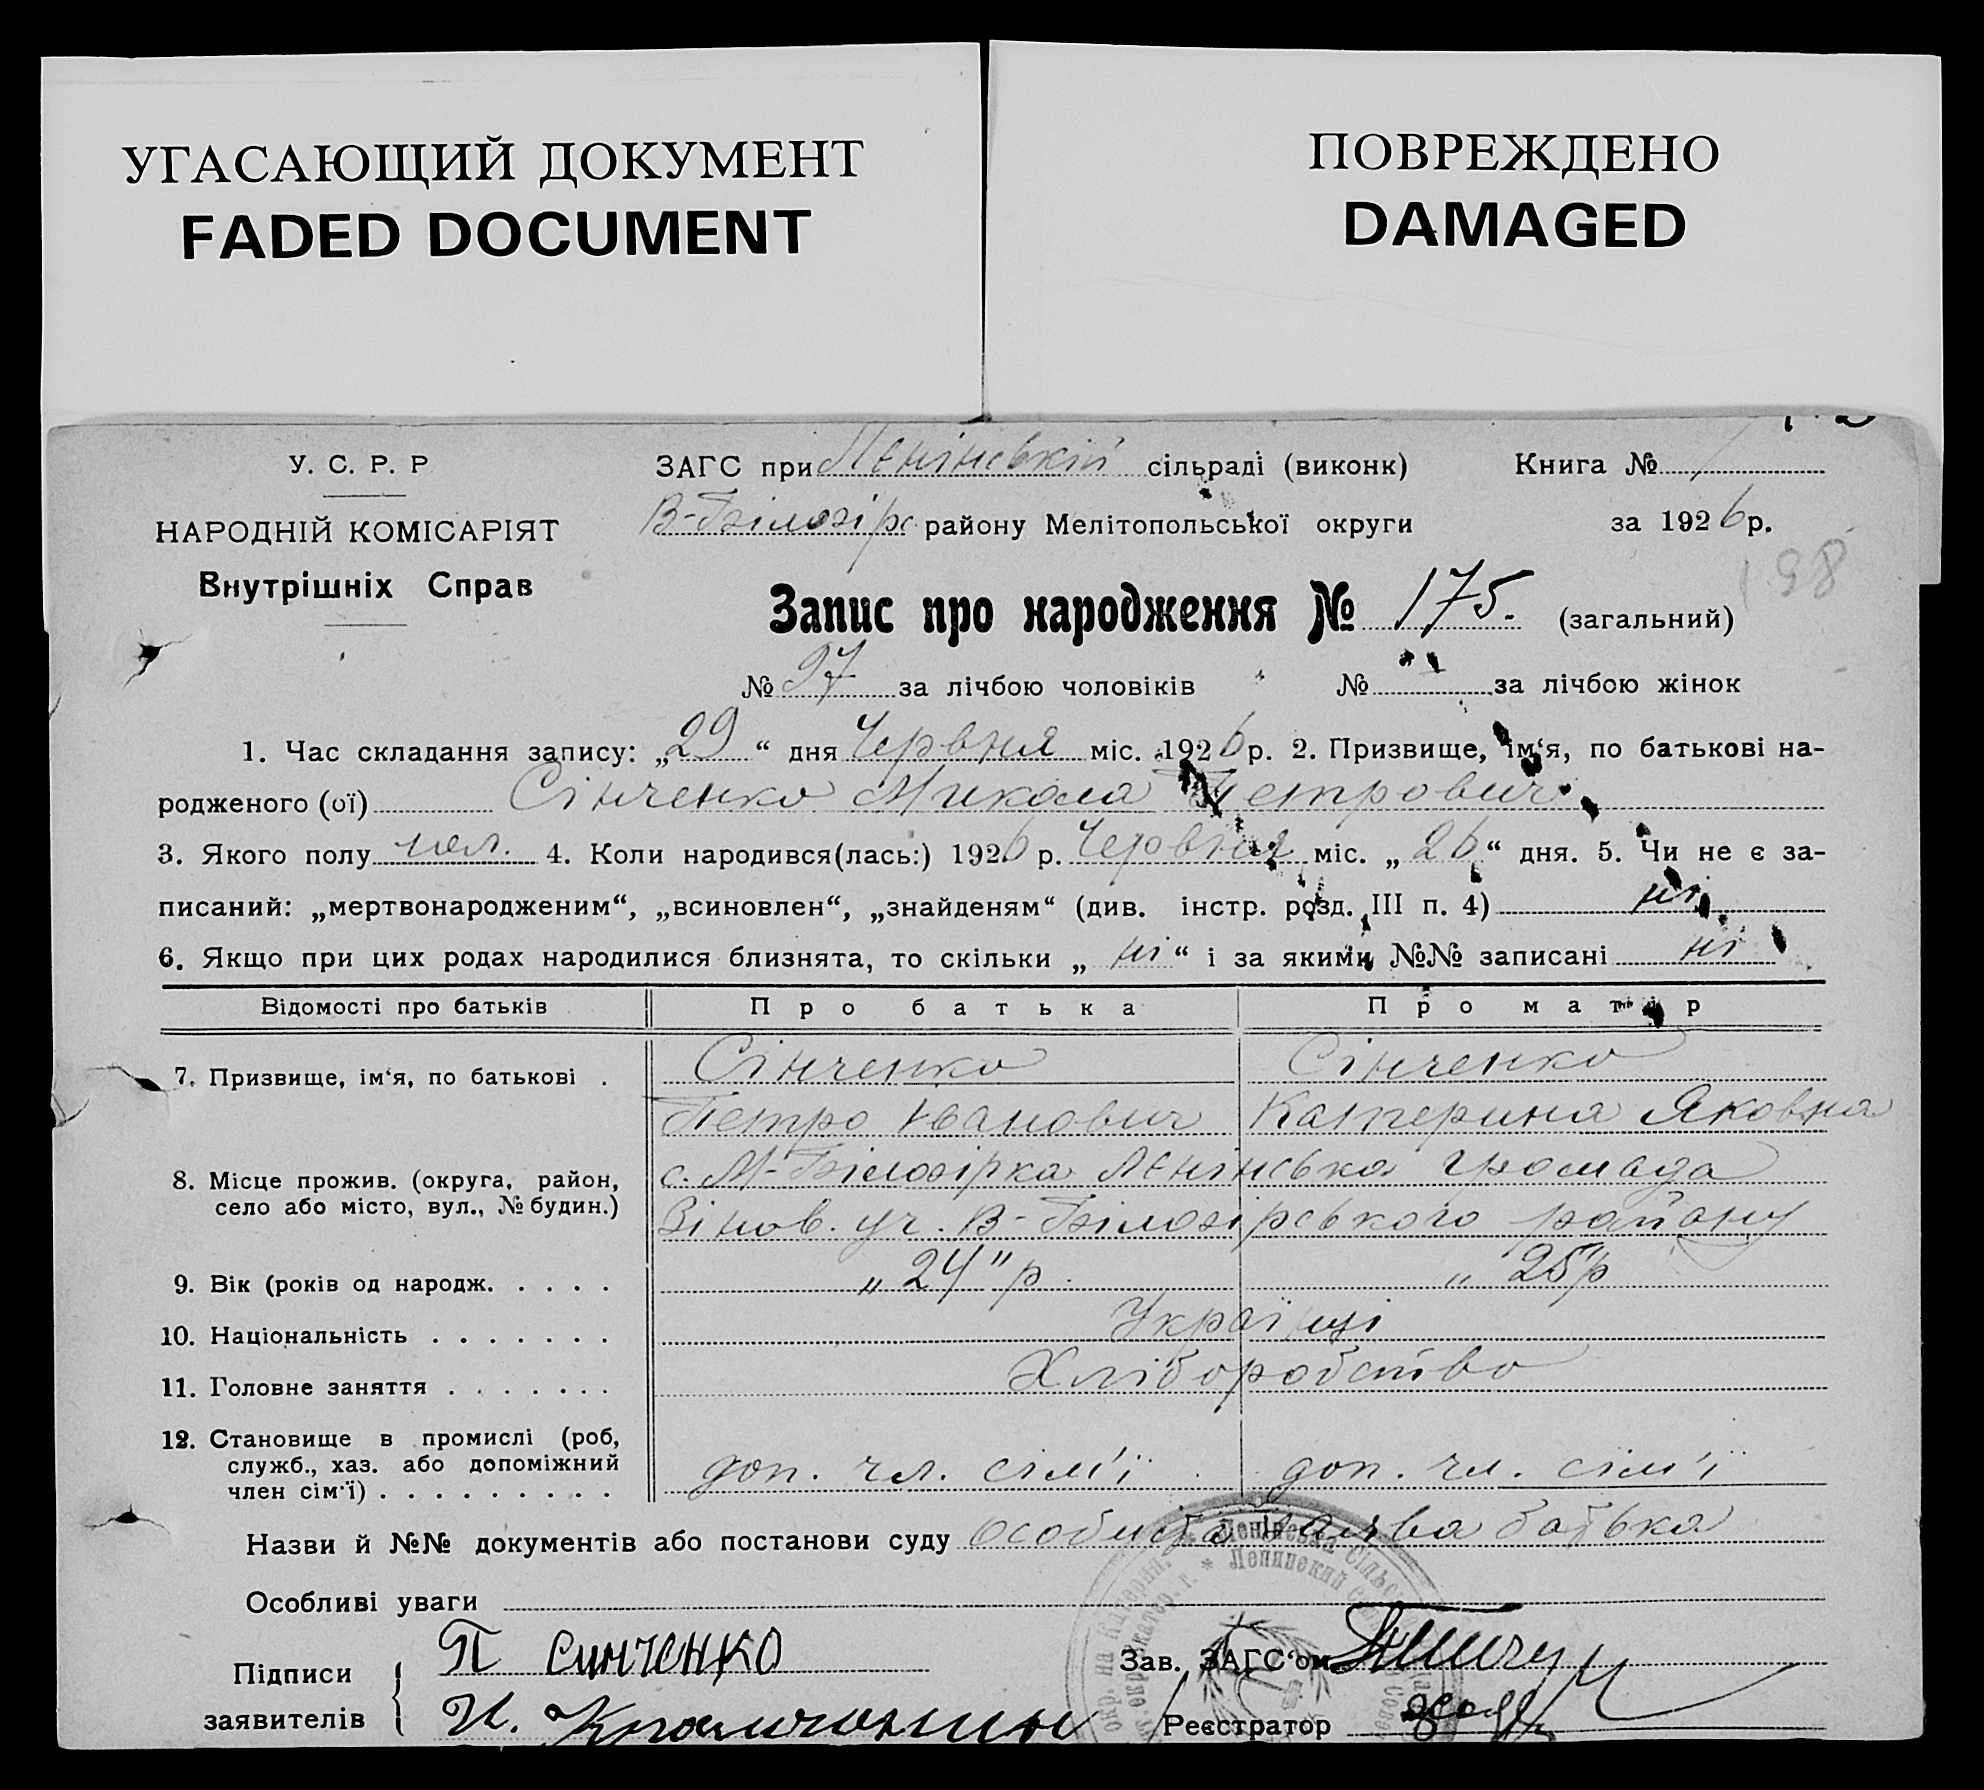 УГАСАЮЩИЙ ДОКУМЕНТ
FADED DOCUMENT
ПОВРЕЖДЕНО
DAMAGED
У. С. Р. Р
НАРОДНІЙ КОМІСАРІЯТ
Внутрішніх Справ
ЗАГС при Ленінській сільраді (виконк) Книга № 1
В-Білозірс. району Мелітопольської округи за 1926 р.
198
Запис про народження № 175. (загальний)
№ 97 за лічбою чоловіків № за лічбою жінок
1. Час складання запису: „29“ дня Червня міс. 1926 р. 2. Призвище, ім‘я, по батькові на-
родженого (ої) Сінченко Микола Петрович
3. Якого полу чол. 4. Коли народився(лась:) 1926 р. Червня міс. „26“ дня. 5. Чи не є за-
писаний: „мертвонародженим“, „всиновлен“, „знайденям“ (див. інстр. розд. III п. 4) ні
6. Якщо при цих родах народилися близнята, то скільки „ні“ і за якими №№ записані ні
Відомості про батьків Про батька Про матір
7. Призвище, ім‘я, по батькові . Сінченко Сінченко
Петро Іванович Катерина Яковна
8. Місце прожив. (округа, район, с. М-Білозірка Ленінська громада
село або місто, вул., № будин.) Зінов. уч. В-Білозірського району
9. Вік (років од народж. . . . . „24“ р. „25“ р
10. Національність . . . . . . . Українці
11. Головне заняття . . . . . . . Хліборобство
12. Становище в промислі (роб,
служб., хаз. або допоміжний доп. чл. сім'ї доп. чл. сім'ї
член сім‘ї) . . . . . . . . .
Назви й №№ документів або постанови суду особиста заява батька
Особливі уваги
Підписи П Синченко Зав. ЗАГС‘ом
заявителів И. Реєстратор